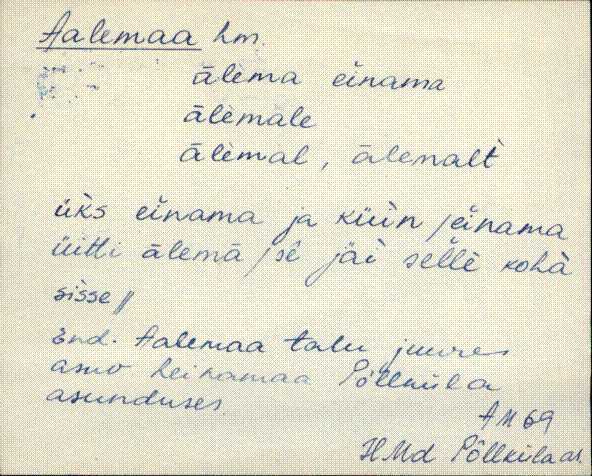 Aalemaa hm.
ālema einama
ālemale
ālemal, ālemalt
üks einama ja küin / einama
üitti ālemā / sē jäi sellē kohā
sisse //
End. Aalemaa talu juures
asuv heinamaa Põllküla
asunduses
AM 69
HMd Põllküla as.